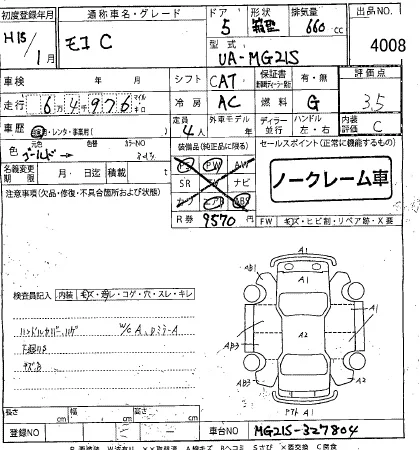 初度登録年月 通称車名・グレード ドア 形状 排気量 出品NO.
H15年 1月 モコ C 5 660cc 4008
型式 UA-MG21S
車検 年 月 シフト CAT 保証書 有・無 評価点
走行 6万4千976 マイル キロ 冷房 AC 燃料 G 3.5
車歴 ・レンタ・事業用( ) 定員 4人 外車モデル 年 ディーラー 並行 ハンドル 左・右 内装評価 C
元色 色替 カラーNO
色 ゴールド →
名義変更期限 月 日迄 積載 t
装備品(純正品に限る) セールスポイント(正常に機能するもの)
PS PW AW
SR SW ナビ
カワ エアB ABS
ノークレーム車
注意事項(欠品・修復・不具合箇所および状態)
R券 9570円 FW キズ・ヒビ割・リペア跡・X要
検査員記入 内装 キズ・汚レ・コゲ・穴・スレ・キレ
W/C A、Dミラー A
下廻りS
キズ多
A1
AB1
A1
A2
AB3
AB3
A1
長さ cm 幅 cm 高さ cm
登録NO 車台NO MG21S-327804